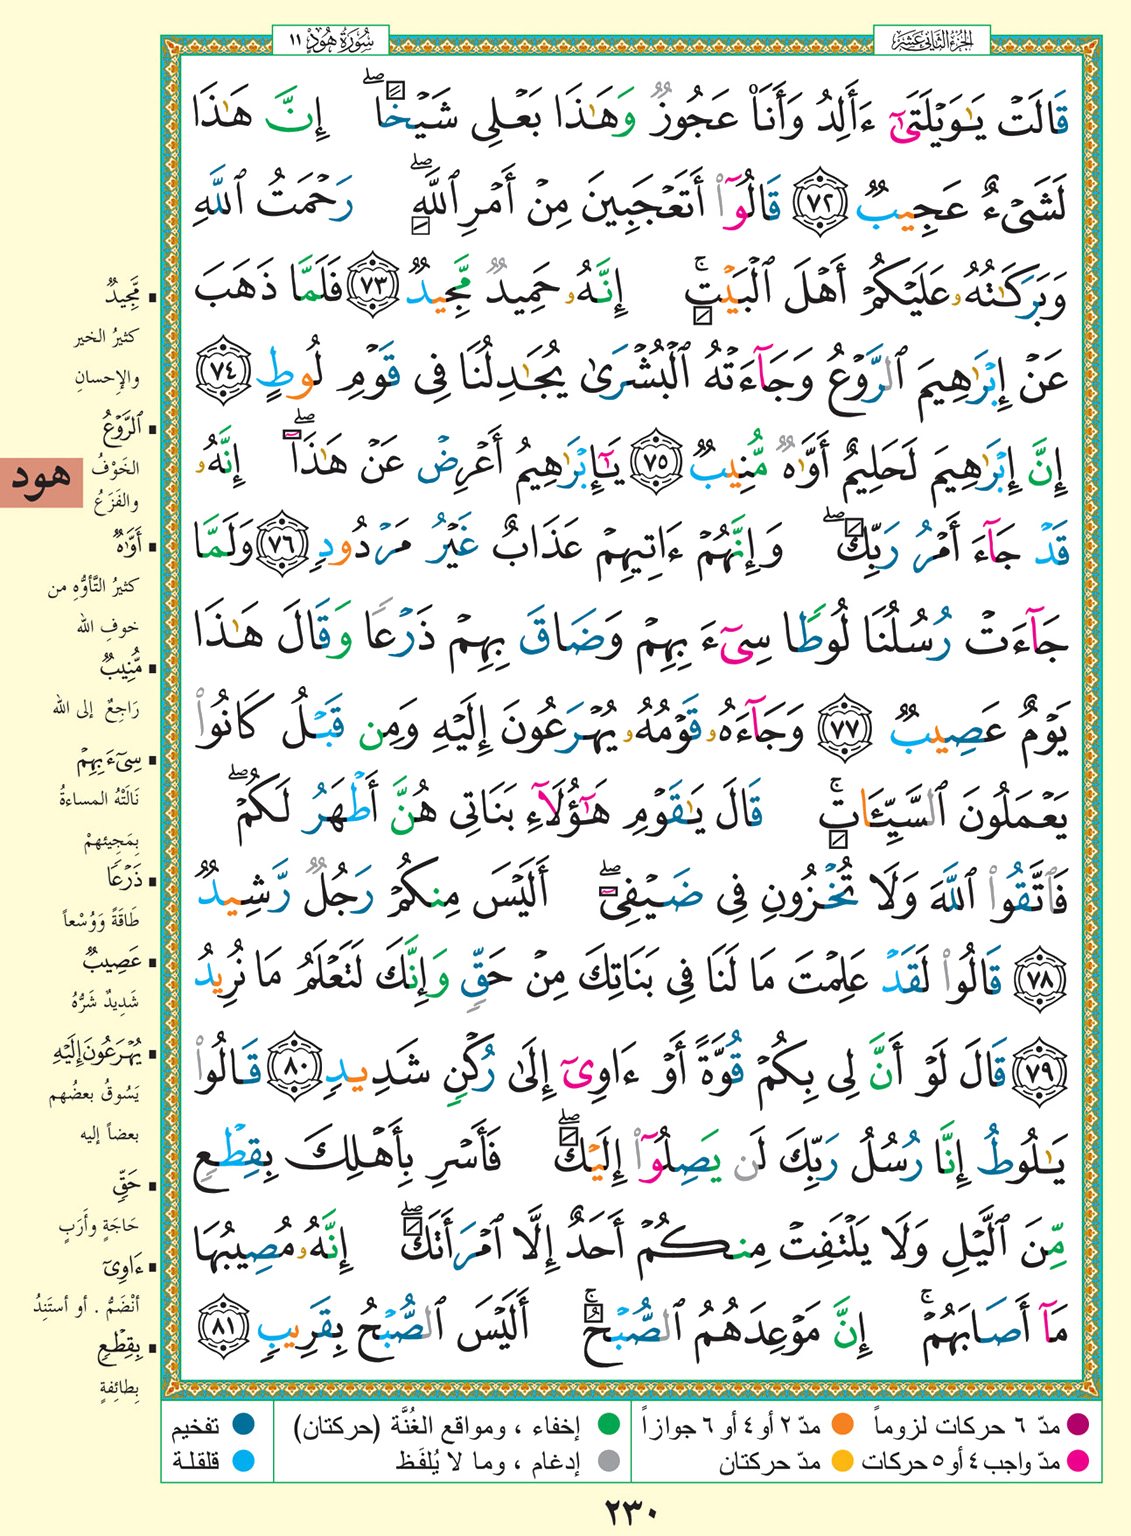 الجزء الثاني عشر
سُورَةُ هُودٍ ١١
قَالَتْ يَـٰوَيْلَتَىٰٓ ءَأَلِدُ وَأَنَا۠ عَجُوزٌ وَهَـٰذَا بَعْلِى شَيْخًا ۖ إِنَّ هَـٰذَا
لَشَىْءٌ عَجِيبٌ ٧٢ قَالُوٓا۟ أَتَعْجَبِينَ مِنْ أَمْرِ ٱللَّهِ ۖ رَحْمَتُ ٱللَّهِ
وَبَرَكَـٰتُهُۥ عَلَيْكُمْ أَهْلَ ٱلْبَيْتِ ۚ إِنَّهُۥ حَمِيدٌ مَّجِيدٌ ٧٣ فَلَمَّا ذَهَبَ
عَنْ إِبْرَٰهِيمَ ٱلرَّوْعُ وَجَآءَتْهُ ٱلْبُشْرَىٰ يُجَـٰدِلُنَا فِى قَوْمِ لُوطٍ ٧٤
إِنَّ إِبْرَٰهِيمَ لَحَلِيمٌ أَوَّٰهٌ مُّنِيبٌ ٧٥ يَـٰٓإِبْرَٰهِيمُ أَعْرِضْ عَنْ هَـٰذَآ ۖ إِنَّهُۥ
قَدْ جَآءَ أَمْرُ رَبِّكَ ۖ وَإِنَّهُمْ ءَاتِيهِمْ عَذَابٌ غَيْرُ مَرْدُودٍ ٧٦ وَلَمَّا
جَآءَتْ رُسُلُنَا لُوطًا سِىٓءَ بِهِمْ وَضَاقَ بِهِمْ ذَرْعًا وَقَالَ هَـٰذَا
يَوْمٌ عَصِيبٌ ٧٧ وَجَآءَهُۥ قَوْمُهُۥ يُهْرَعُونَ إِلَيْهِ وَمِن قَبْلُ كَانُوا۟
يَعْمَلُونَ ٱلسَّيِّـَٔاتِ ۚ قَالَ يَـٰقَوْمِ هَـٰٓؤُلَآءِ بَنَاتِى هُنَّ أَطْهَرُ لَكُمْ ۖ
فَٱتَّقُوا۟ ٱللَّهَ وَلَا تُخْزُونِ فِى ضَيْفِىٓ ۖ أَلَيْسَ مِنكُمْ رَجُلٌ رَّشِيدٌ
٧٨ قَالُوا۟ لَقَدْ عَلِمْتَ مَا لَنَا فِى بَنَاتِكَ مِنْ حَقٍّ وَإِنَّكَ لَتَعْلَمُ مَا نُرِيدُ
٧٩ قَالَ لَوْ أَنَّ لِى بِكُمْ قُوَّةً أَوْ ءَاوِىٓ إِلَىٰ رُكْنٍ شَدِيدٍ ٨٠ قَالُوا۟
يَـٰلُوطُ إِنَّا رُسُلُ رَبِّكَ لَن يَصِلُوٓا۟ إِلَيْكَ ۖ فَأَسْرِ بِأَهْلِكَ بِقِطْعٍ
مِّنَ ٱلَّيْلِ وَلَا يَلْتَفِتْ مِنكُمْ أَحَدٌ إِلَّا ٱمْرَأَتَكَ ۖ إِنَّهُۥ مُصِيبُهَا
مَآ أَصَابَهُمْ ۚ إِنَّ مَوْعِدَهُمُ ٱلصُّبْحُ ۚ أَلَيْسَ ٱلصُّبْحُ بِقَرِيبٍ ٨١
مَّجِيدٌ
كثيرُ الخير
والإحسانِ
ٱلرَّوْعُ
الخَوْفُ
والفَزَعُ
هود
أَوَّٰهٌ
كثيرُ التَّأَوُّهِ من
خوفِ الله
مُّنِيبٌ
رَاجِعٌ إلى الله
سِىٓءَ بِهِمْ
نَالَتْهُ المساءةُ
بِمَجِيئِهِمْ
ذَرْعًا
طَاقَةً وَوُسْعاً
عَصِيبٌ
شَدِيدٌ شَرُّهُ
يُهْرَعُونَ إِلَيْهِ
يَسُوقُ بعضُهم
بعضاً إليه
حَقٍّ
حَاجَةٍ وأَرَبٍ
ءَاوِىٓ
أنْضَمُّ . أو أستَنِدُ
بِقِطْعٍ
بِطائِفةٍ
مدّ ٦ حركات لزوماً
مدّ ٢ أو ٤ أو ٦ جوازاً
إخفاء ، ومواقع الغُنَّة (حركتان)
تفخيم
مدّ واجب ٤ أو ٥ حركات
مدّ حركتان
إدغام ، وما لا يُلفَظ
قلقلة
٢٣٠